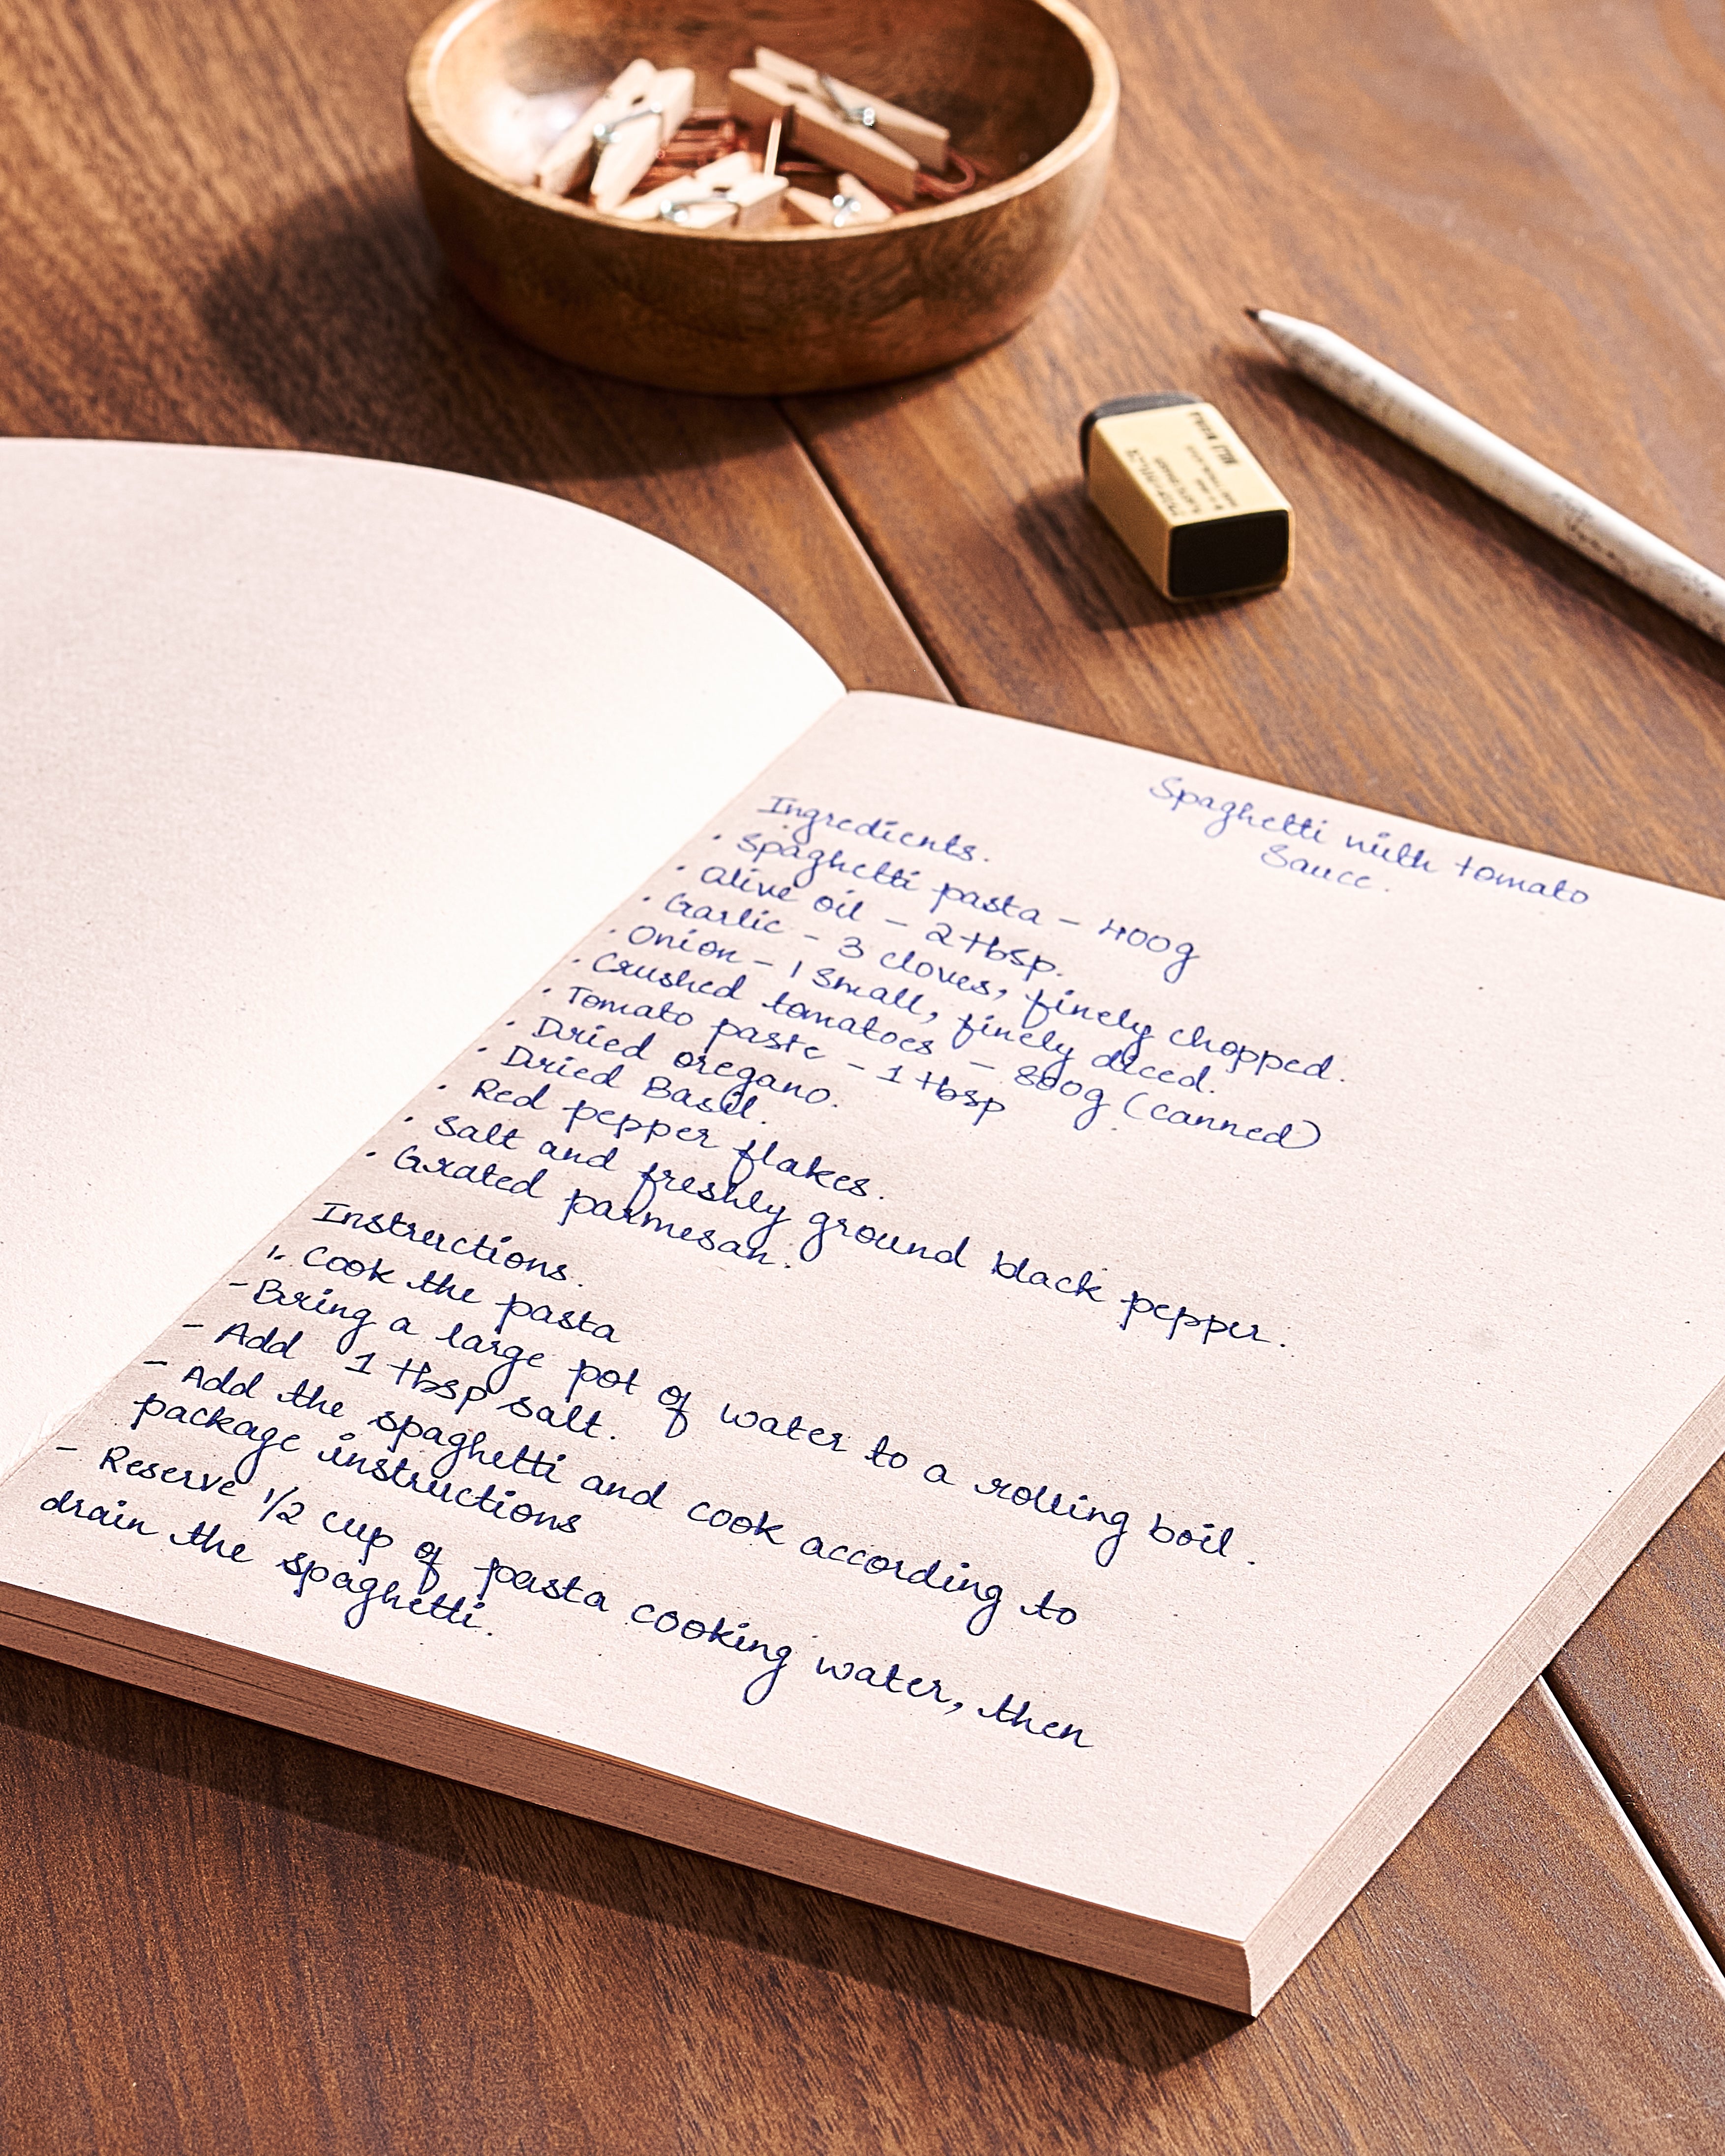 Spaghetti with tomato
Sauce.
Ingredients.
· Spaghetti pasta - 400g
· Olive oil - 2 tbsp.
· Garlic - 3 cloves, finely chopped.
· Onion - 1 small, finely diced.
· Crushed tomatoes - 800g (canned)
· Tomato paste - 1 tbsp
· Dried oregano.
· Dried Basil.
· Red pepper flakes.
· Salt and freshly ground black pepper.
· Grated parmesan.
Instructions.
1. Cook the pasta
- Bring a large pot of water to a rolling boil.
- Add 1 tbsp salt.
- Add the spaghetti and cook according to
package instructions
- Reserve 1/2 cup of pasta cooking water, then
drain the spaghetti.